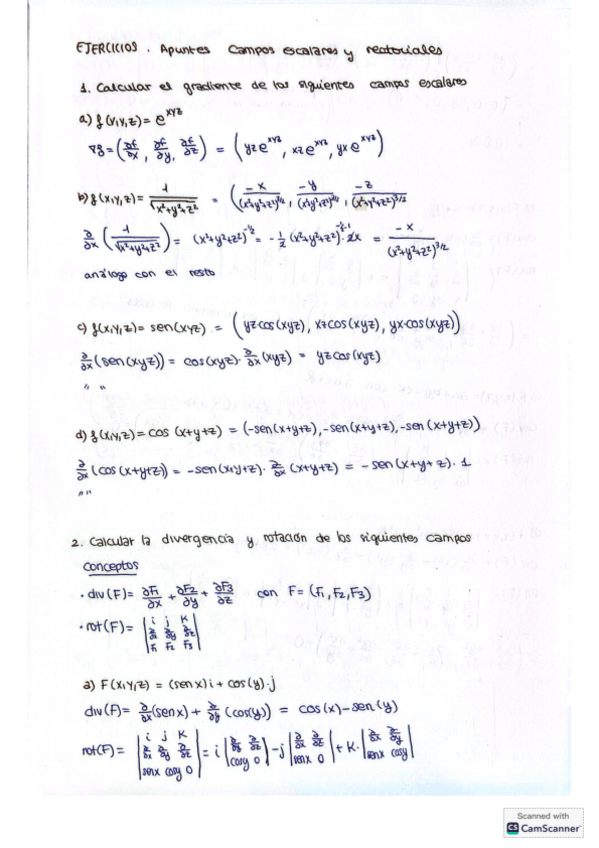 EJERCICIOS. Apuntes Campos escalares y vectoriales
1. Calcular el gradiente de los siguientes campos escalares
a) f(x,y,z) = e^xyz
∇f = (∂f/∂x, ∂f/∂y, ∂f/∂z) = (yz e^xyz, xz e^xyz, yx e^xyz)
b) f(x,y,z) = 1/√(x²+y²+z²) = (-x/(x²+y²+z²)^3/2, -y/(x²+y²+z²)^3/2, -z/(x²+y²+z²)^3/2)
∂/∂x (1/√(x²+y²+z²)) = (x²+y²+z²)^-1/2 = -1/2 (x²+y²+z²)^(-1/2-1) · 2x = -x/(x²+y²+z²)^3/2
análogo con el resto
c) f(x,y,z) = sen(xyz) = (yz cos(xyz), xz cos(xyz), yx cos(xyz))
∂/∂x (sen(xyz)) = cos(xyz) · ∂/∂x (xyz) = yz cos(xyz)
" "
d) f(x,y,z) = cos(x+y+z) = (-sen(x+y+z), -sen(x+y+z), -sen(x+y+z))
∂/∂x (cos(x+y+z)) = -sen(x+y+z) · ∂/∂x (x+y+z) = -sen(x+y+z) · 1
" "
2. Calcular la divergencia y rotación de los siguientes campos
conceptos
· div(F) = ∂F1/∂x + ∂F2/∂y + ∂F3/∂z con F = (F1, F2, F3)
· rot(F) = | i j k ; ∂/∂x ∂/∂y ∂/∂z ; F1 F2 F3 |
a) F(x,y,z) = (sen x) i + cos(y) · j
div(F) = ∂/∂x (sen x) + ∂/∂y (cos(y)) = cos(x) - sen(y)
rot(F) = | i j k ; ∂/∂x ∂/∂y ∂/∂z ; sen x cos y 0 | = i | ∂/∂y ∂/∂z ; cos y 0 | - j | ∂/∂x ∂/∂z ; sen x 0 | + k · | ∂/∂x ∂/∂y ; sen x cos y |
Scanned with
CS CamScanner